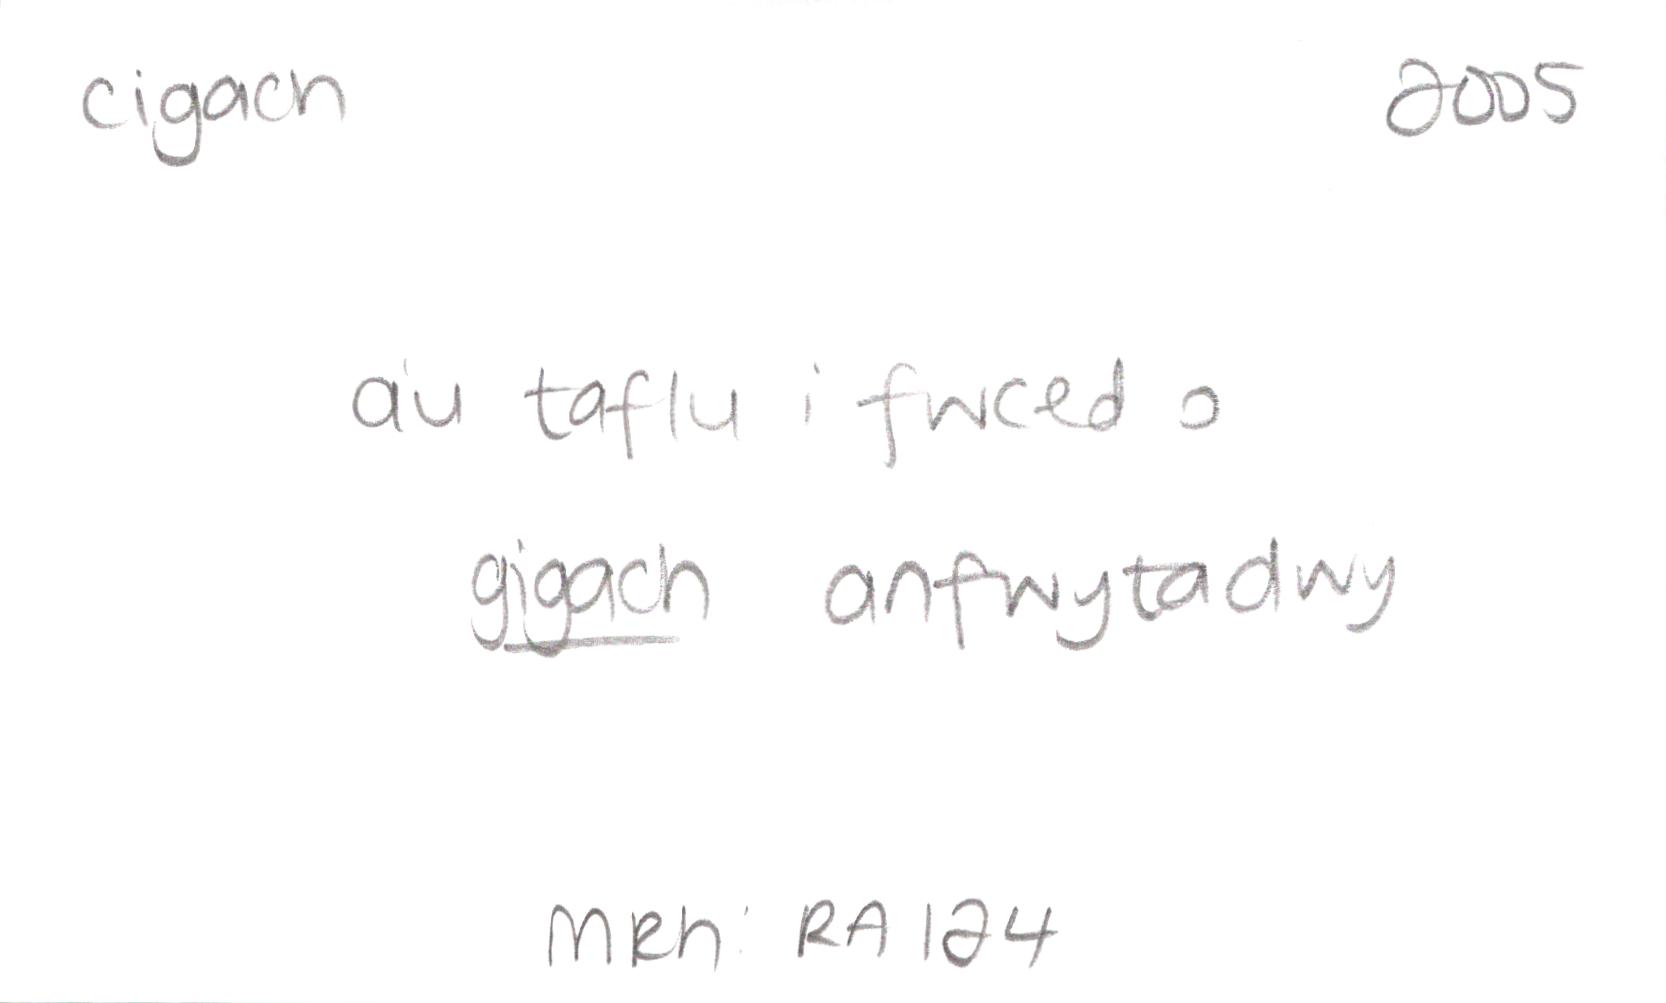 cigach 2005
a'u taflu i fwced o
gigach anfwytadwy
MRh: RA 124